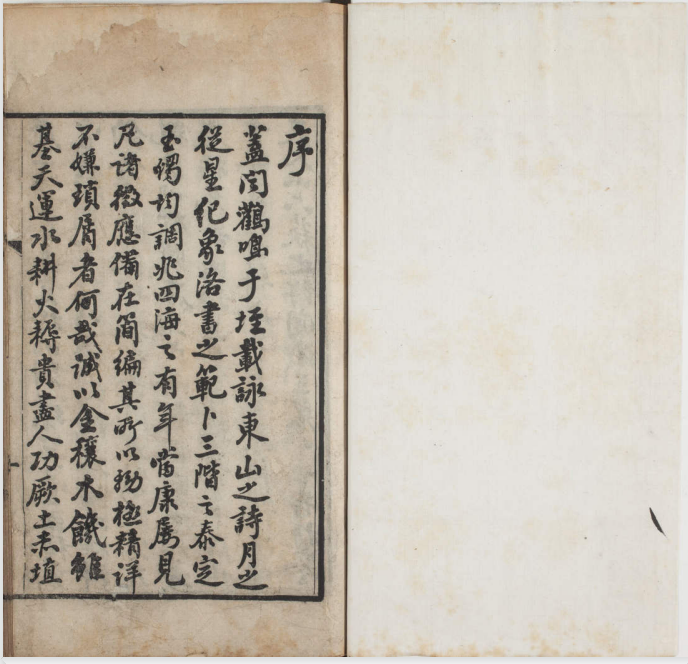 序
蓋闻鸛鳴于垤載詠東山之詩月之
從星紀象洛書之範卜三階之泰定
玉燭均調兆四海之有年當康屢見
凡諸徵應備在簡編其所以鈎極精詳
不嫌瑣屑者何哉誠以金穰木饑雖
基天運水耕火耨貴盡人功厥土赤埴